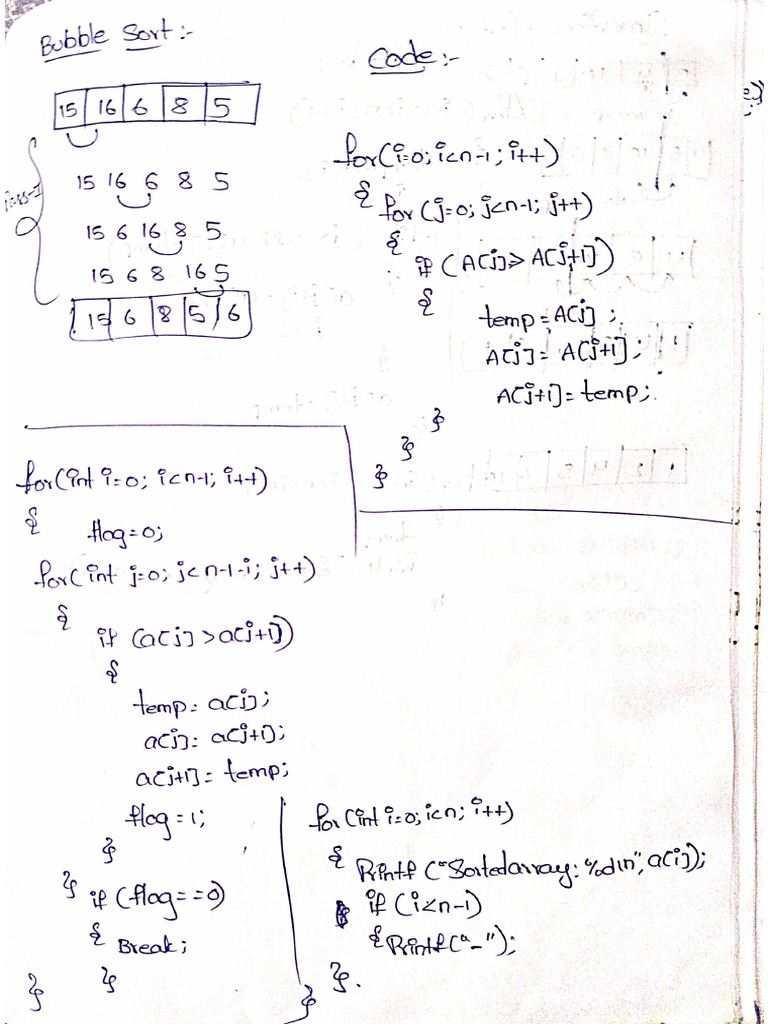 Bubble Sort :-
15 16 6 8 5
Pass-1
15 16 6 8 5
15 6 16 8 5
15 6 8 16 5
15 6 8 5 6
Code :-
for(i=0; i<n-1; i++)
{
for (j=0; j<n-1; j++)
{
if (A[j]> A[j+1])
{
temp = A[j] ;
A[j] = A[j+1] ;
A[j+1] = temp;
}
}
}
for(int i=0; i<n-1; i++)
{ flog=0;
for(int j=0; j<n-1-i; j++)
{
if (a[j] >a[j+1])
{
temp = a[j];
a[j] = a[j+1];
a[j+1] = temp;
flog = 1;
}
}
if (flog==0)
{ Break;
}
}
for(int i=0; i<n; i++)
{ Printf ("Sorted array: %d\n", a[i]);
if (i<n-1)
{ Printf("-");
}.
}